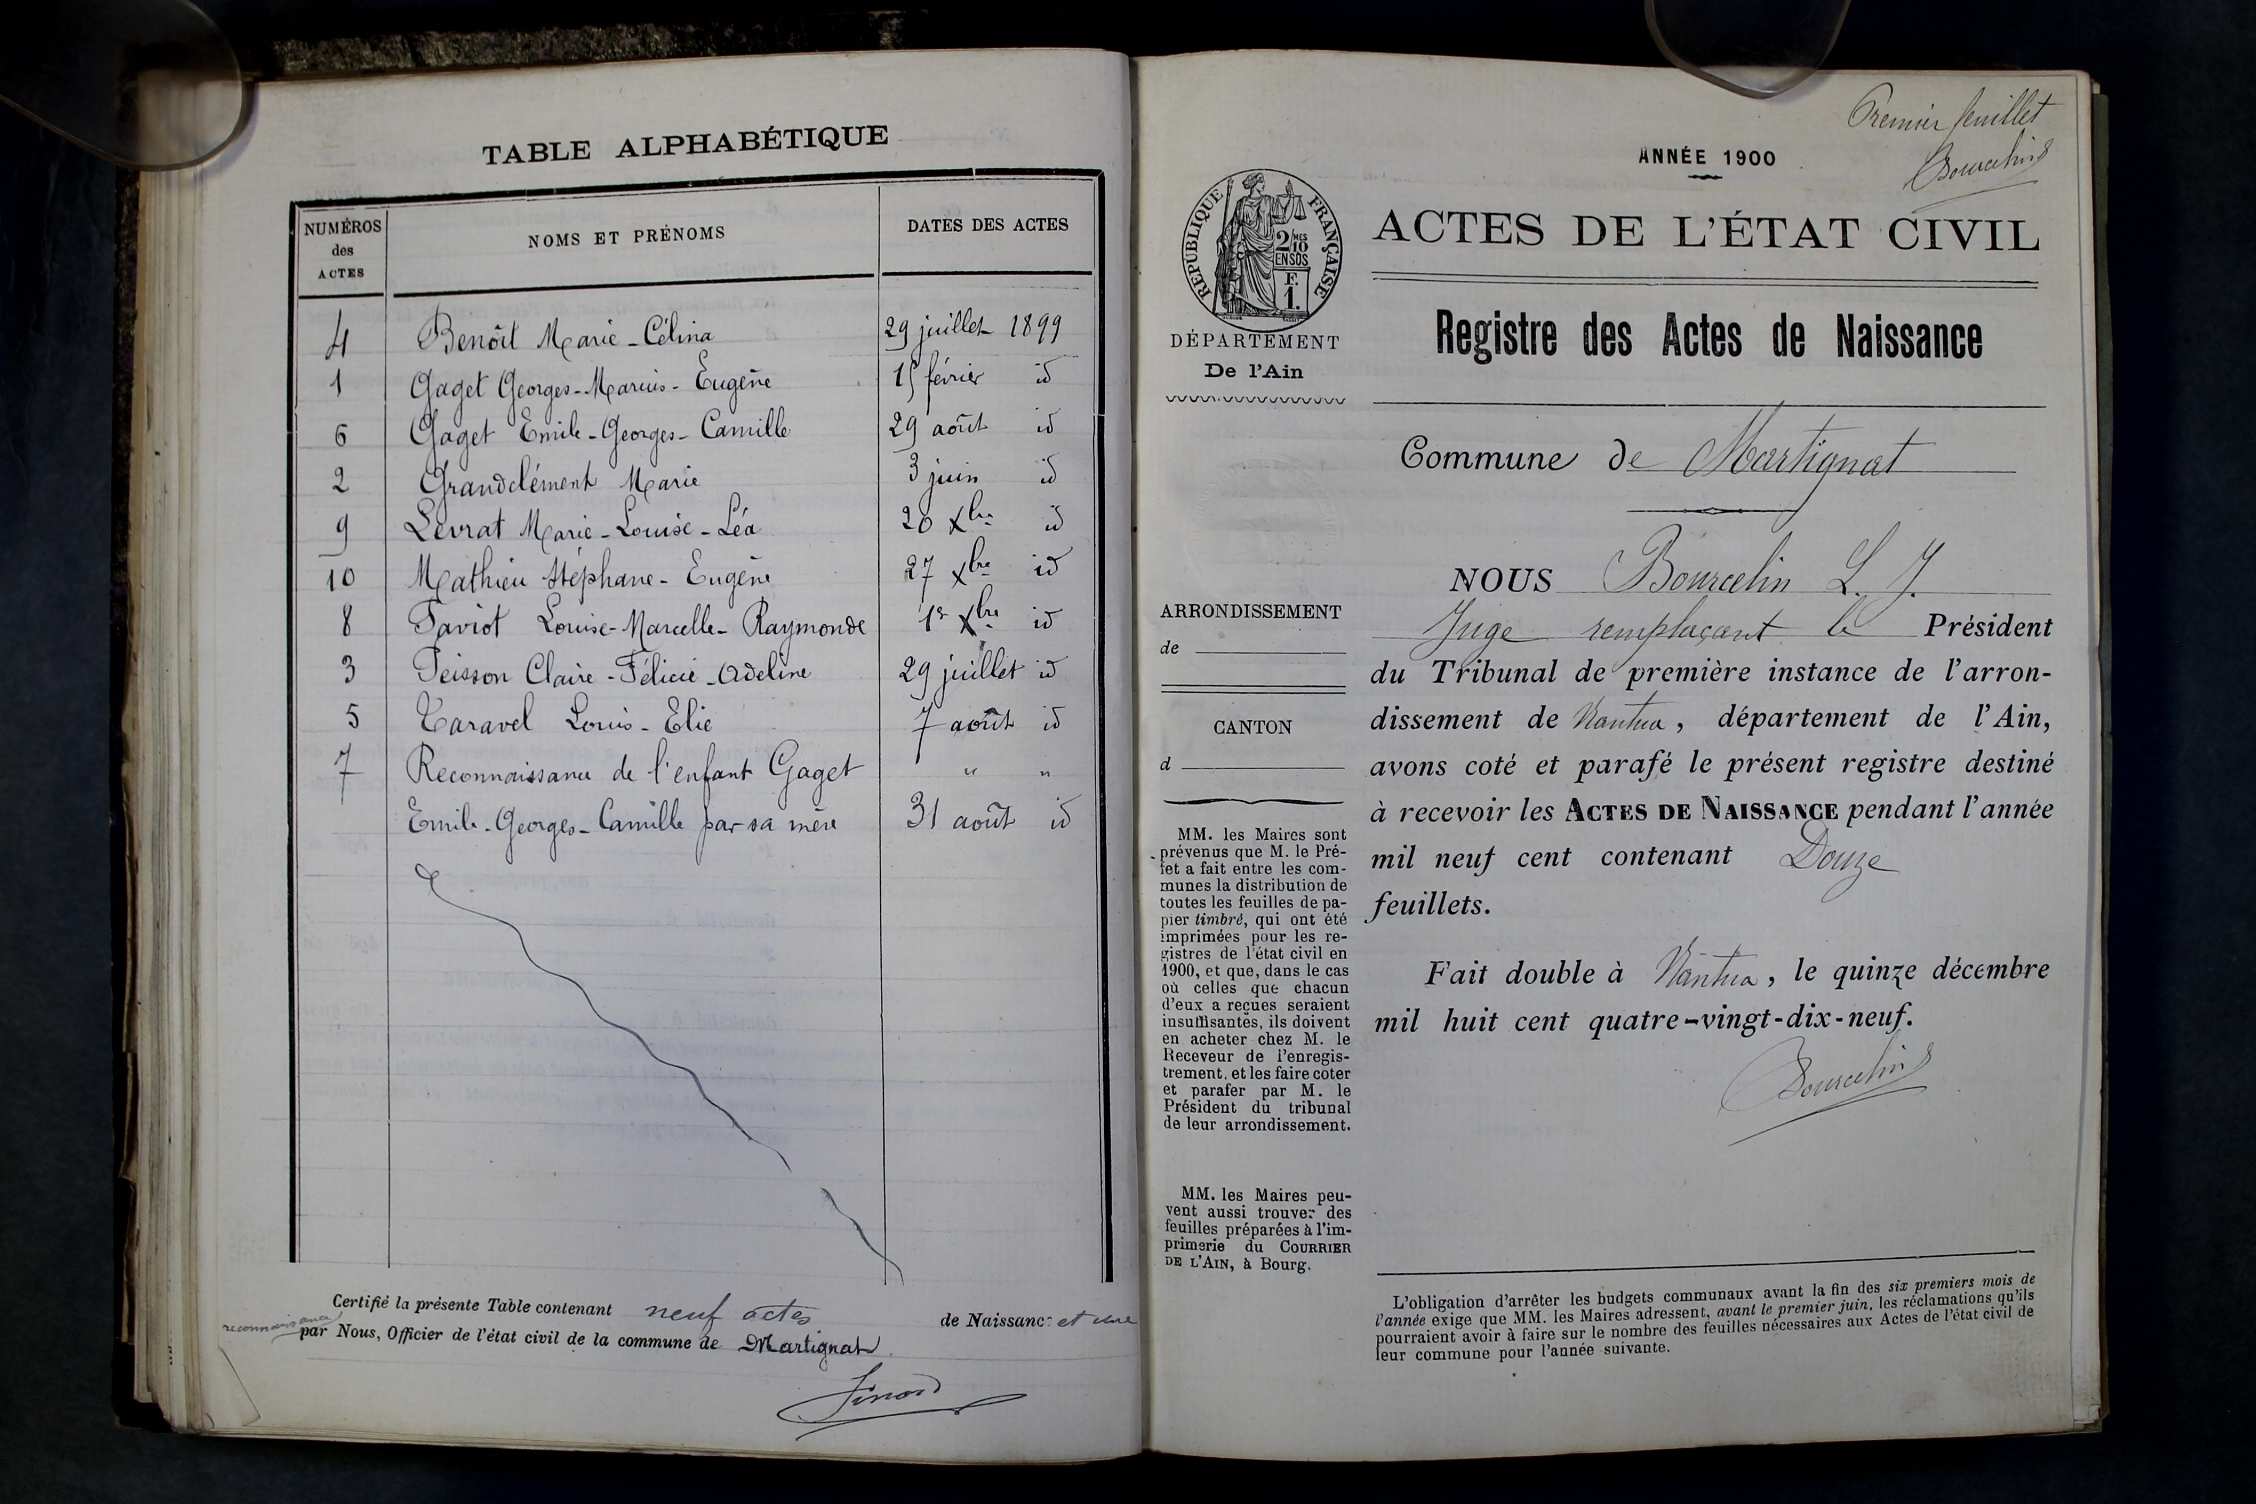 TABLE ALPHABÉTIQUE
NUMÉROS des ACTES | NOMS ET PRÉNOMS | DATES DES ACTES
4 Benoît Marie-Célina 29 juillet 1899
1 Gaget Georges-Marius-Eugène 15 février id
6 Gaget Emile-Georges-Camille 29 août id
2 Grandclément Marie 3 juin id
9 Levrat Marie-Louise-Léa 26 Xbre id
10 Mathieu Stéphane-Eugène 27 Xbre id
8 Paviot Louise-Marcelle-Raymonde 1er Xbre id
3 Peisson Claire-Félicie-Adeline 29 juillet id
5 Taravel Louis-Elie 7 août id
7 Reconnaissance de l'enfant Gaget " "
Emile-Georges-Camille par sa mère 31 août id
Certifié la présente Table contenant neuf actes de Naissance et une
reconnaissance
par Nous, Officier de l'état civil de la commune de Martignat
Premier feuillet
Bourcelin
ANNÉE 1900
RÉPUBLIQUE FRANÇAISE
2/10 MES
EN SUS
F.
1.
ACTES DE L'ÉTAT CIVIL
Registre des Actes de Naissance
DÉPARTEMENT
De l'Ain
Commune de Martignat
NOUS Bourcelin L. J.
Juge remplaçant le Président
du Tribunal de première instance de l'arron-
dissement de Nantua, département de l'Ain,
avons coté et parafé le présent registre destiné
à recevoir les ACTES DE NAISSANCE pendant l'année
mil neuf cent contenant Douze
feuillets.
Fait double à Nantua, le quinze décembre
mil huit cent quatre-vingt-dix-neuf.
Bourcelin
ARRONDISSEMENT
de
CANTON
d
MM. les Maires sont
prévenus que M. le Pré-
fet a fait entre les com-
munes la distribution de
toutes les feuilles de pa-
pier timbré, qui ont été
imprimées pour les re-
gistres de l'état civil en
1900, et que, dans le cas
où celles que chacun
d'eux a reçues seraient
insuffisantes, ils doivent
en acheter chez M. le
Receveur de l'enregis-
trement, et les faire coter
et parafer par M. le
Président du tribunal
de leur arrondissement.
MM. les Maires peu-
vent aussi trouver des
feuilles préparées à l'im-
primerie du COURRIER
DE L'AIN, à Bourg.
L'obligation d'arrêter les budgets communaux avant la fin des six premiers mois de
l'année exige que MM. les Maires adressent, avant le premier juin, les réclamations qu'ils
pourraient avoir à faire sur le nombre des feuilles nécessaires aux Actes de l'état civil de
leur commune pour l'année suivante.